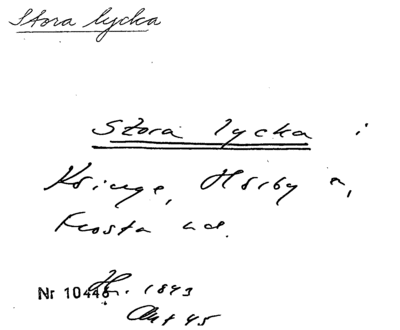 Stora lycka
Stora lycka i
Kringe, Hörby sn,
Frosta hd.
Nr 10446 H. 1843
Akt 45